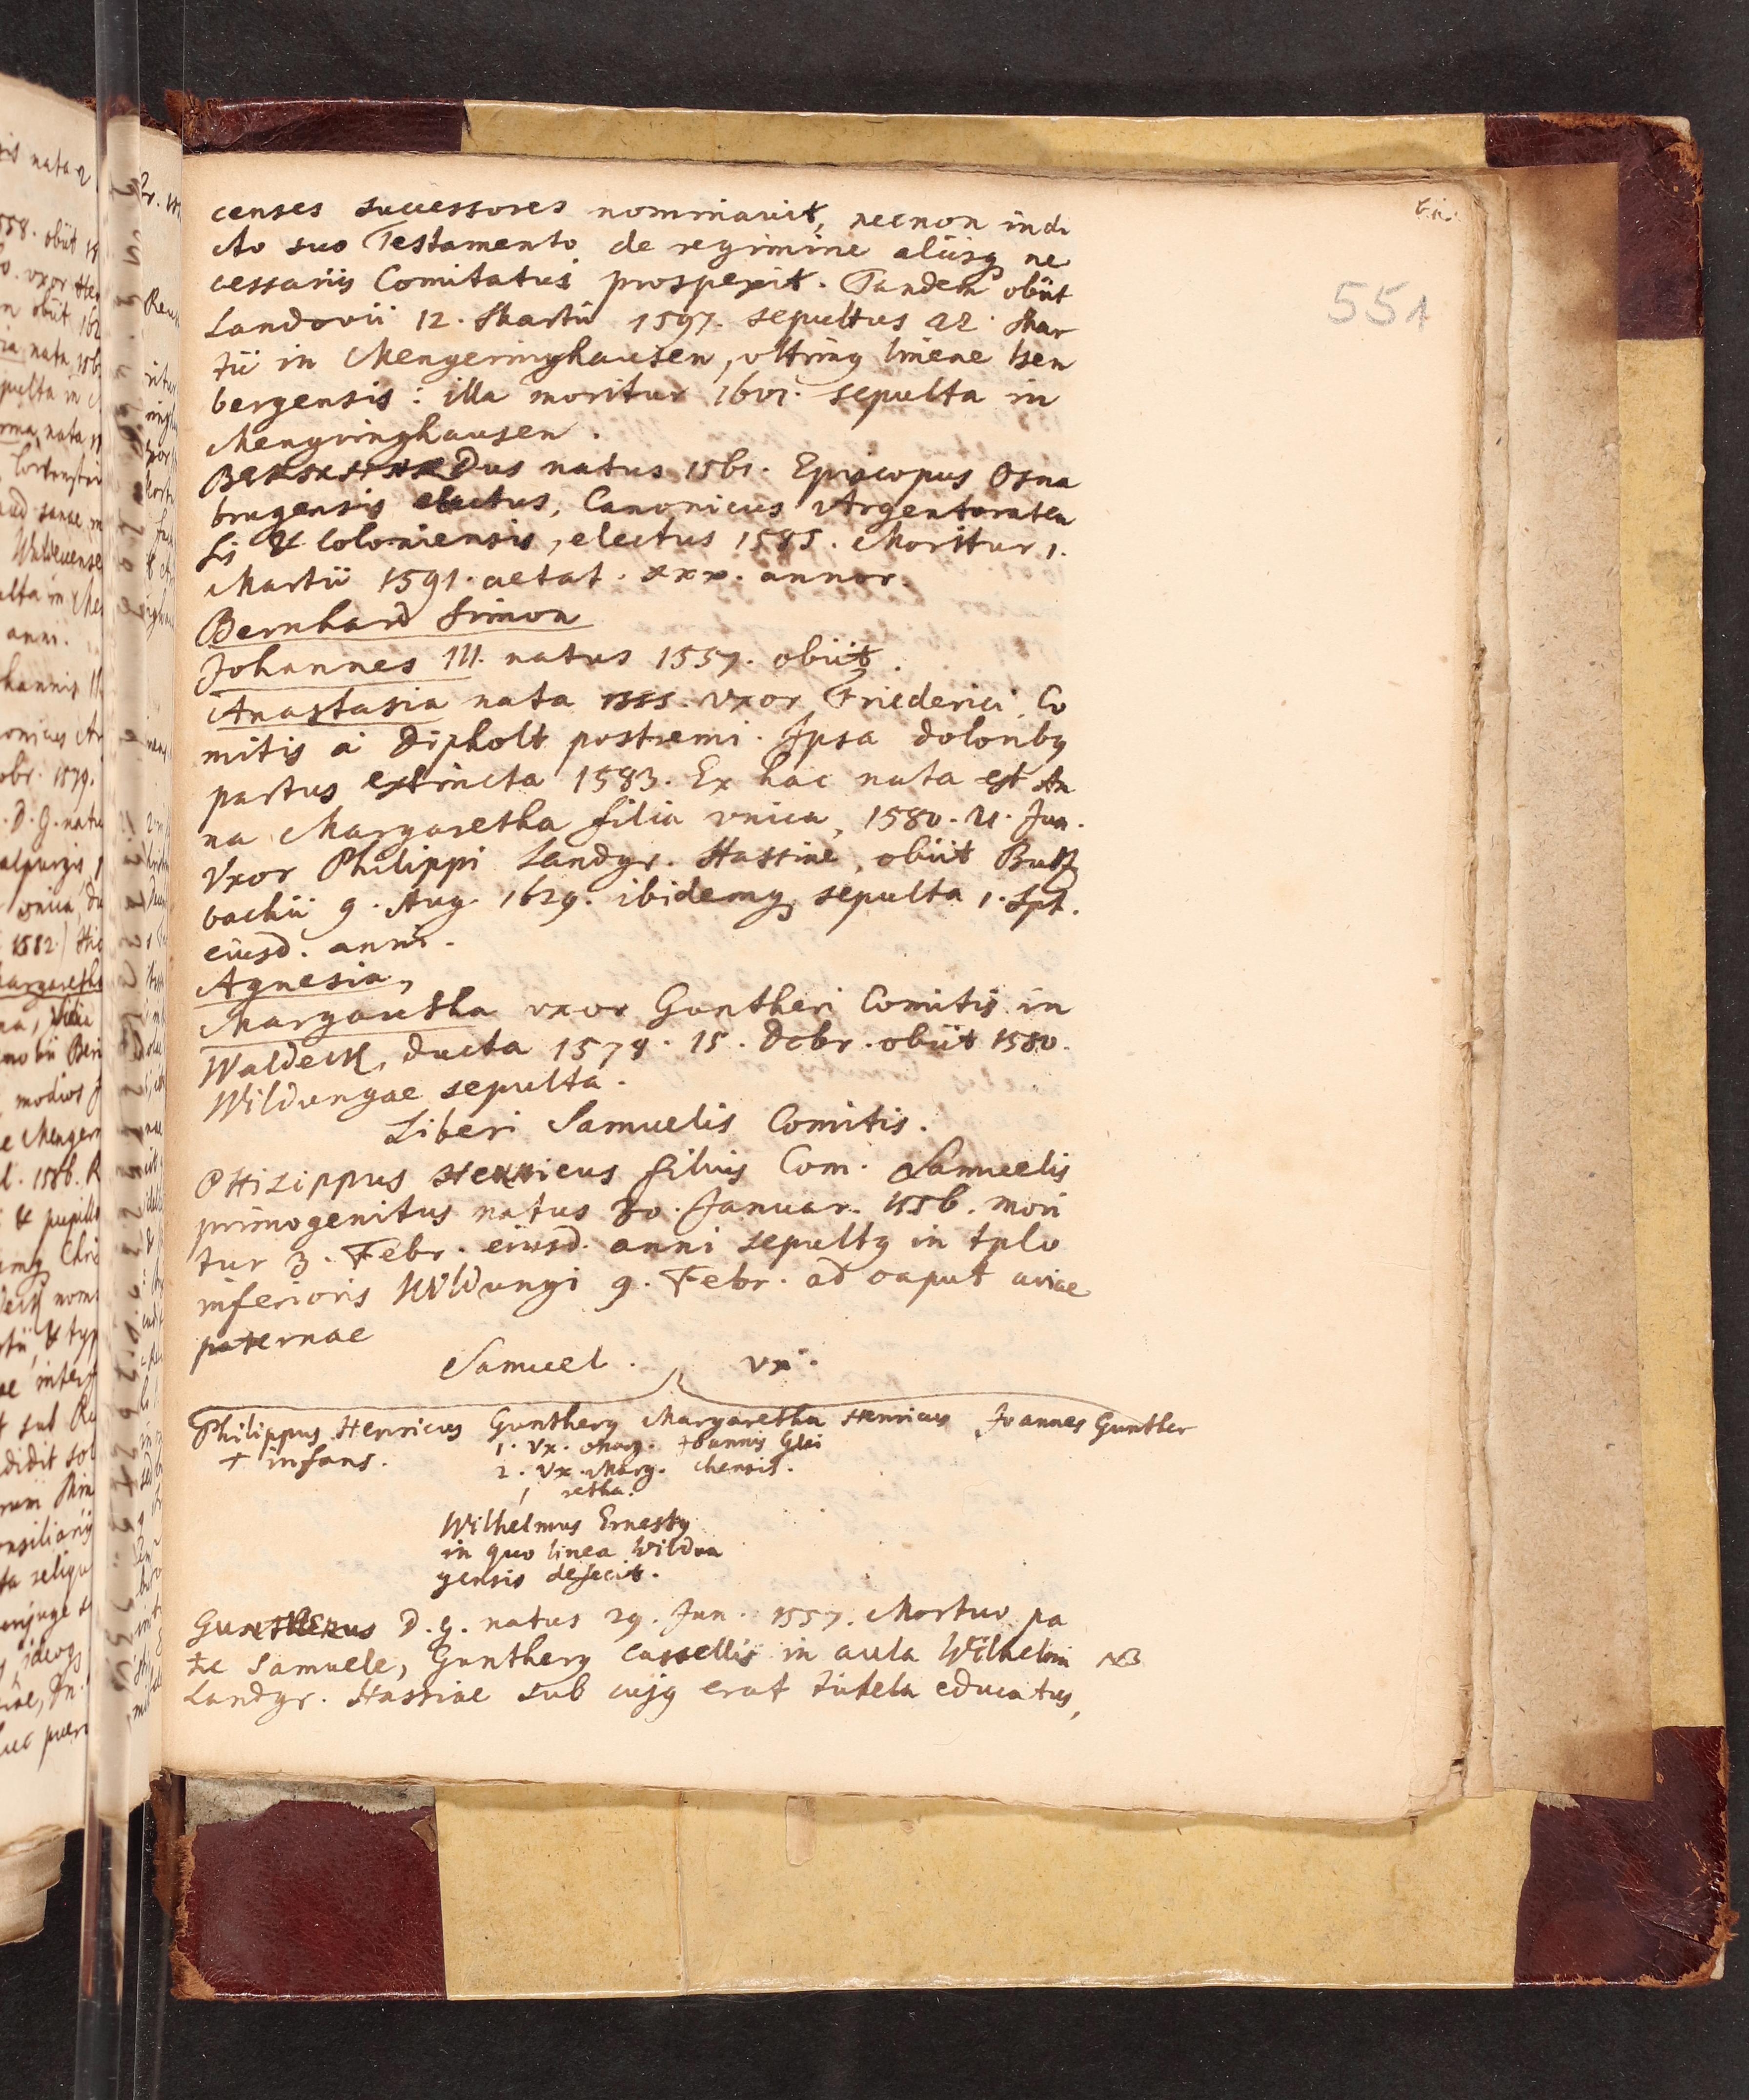 censes successores nominavit, necnon indi
cto suo Testamento de regimine aliisq ne
cessariis Comitatus prospexit. Tandem obiit
Landovii 12. Martii 1597. sepultus 22. Mar
tii in Mengeringhausen, ultimq lineae Isen
bergensis: illa moritur 1601. sepulta in
Mengringhausen.
natus 1561. Episcopus Osna
brugensis electus, Canonicus Argentoraten
sis & Coloniensis, electus 1585. Moritur 1.
Martii 1591. aetat. xxx. annor.
Bernhard Simon
Johannes III. natus 1557. obiit.
Anastasia nata vxor Friederici Co
mitis à Dipholt postremi. Ipsa doloribq
partus extincta 1583. Ex hac nata est An
na Margaretha filia vnica, 1580. 21. Jun.
Vxor Philippi Landgr. Hassiae, obiit Butz
bachii 9. Aug. 1629. ibidemq sepulta 1. Spt.
eiusd. anni.
Agnesia,
Margaretha vxor Guntheri Comitis in
Waldeck, ducta 1578. 15. Dcbr. obiit 1580.
Wildungae sepulta.
Liberi Samuelis Comitis.
PHiLippus Henricus filius Com. Samuelis
primogenitus natus 30. Januar. 1556. mori
tur 3. Febr. eiusd. anni sepultq in tplo
inferioris Wildungi 9. Febr. ad caput aviae
paternae
Samuel. vx.
Philippus Henricus Guntherq Margaretha Henricus Joannes Gunther
† infans. 1. Vx. Marg. Joannis Glei
2. Vx. Marg. chensis.
retha.
Wilhelmus Ernestq
in quo linea Wildun
gensis defecit.
Guntherus D. g. natus 29. Jun. 1557. Mortuo pa
tre Samuele, Guntherq Cassellis in aula Wilhelmi NB
Landgr. Hassiae sub cujq erat tutela educatus,
551